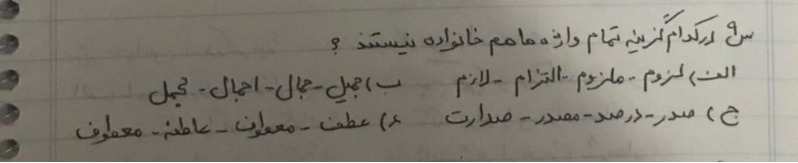 س۹ در کدام گزینه تمام واژه ها هم خانواده نیستند ؟
الف) لزوم - ملزوم - التزام - لازم ب) جمیل - جمال - اجمال - مجمل
ج) صدر - درصد - مصدر - صدارت د) عطف - معطوف - عاطفه - معطوف